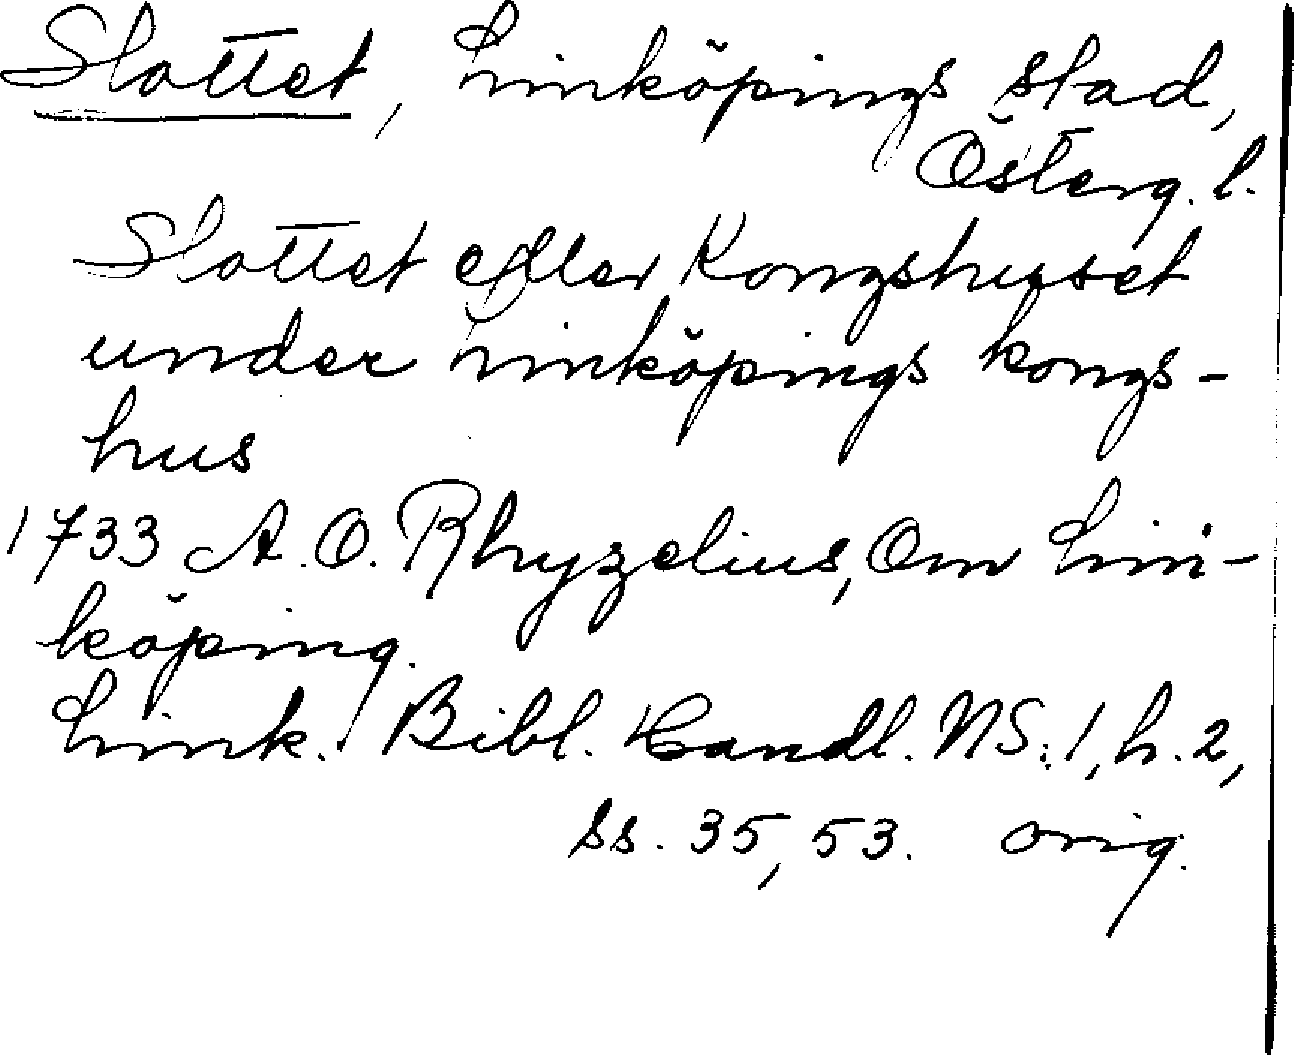 Slottet, Linköpings stad,
Österg. l.
Slottet eller Kongshuset
under Linköpings kongs-
hus
1733 A. O. Rhyzelius, Om Lin-
köping.
Link. Bibl. Handl. NS: 1, h. 2,
ss. 35, 53. orig.